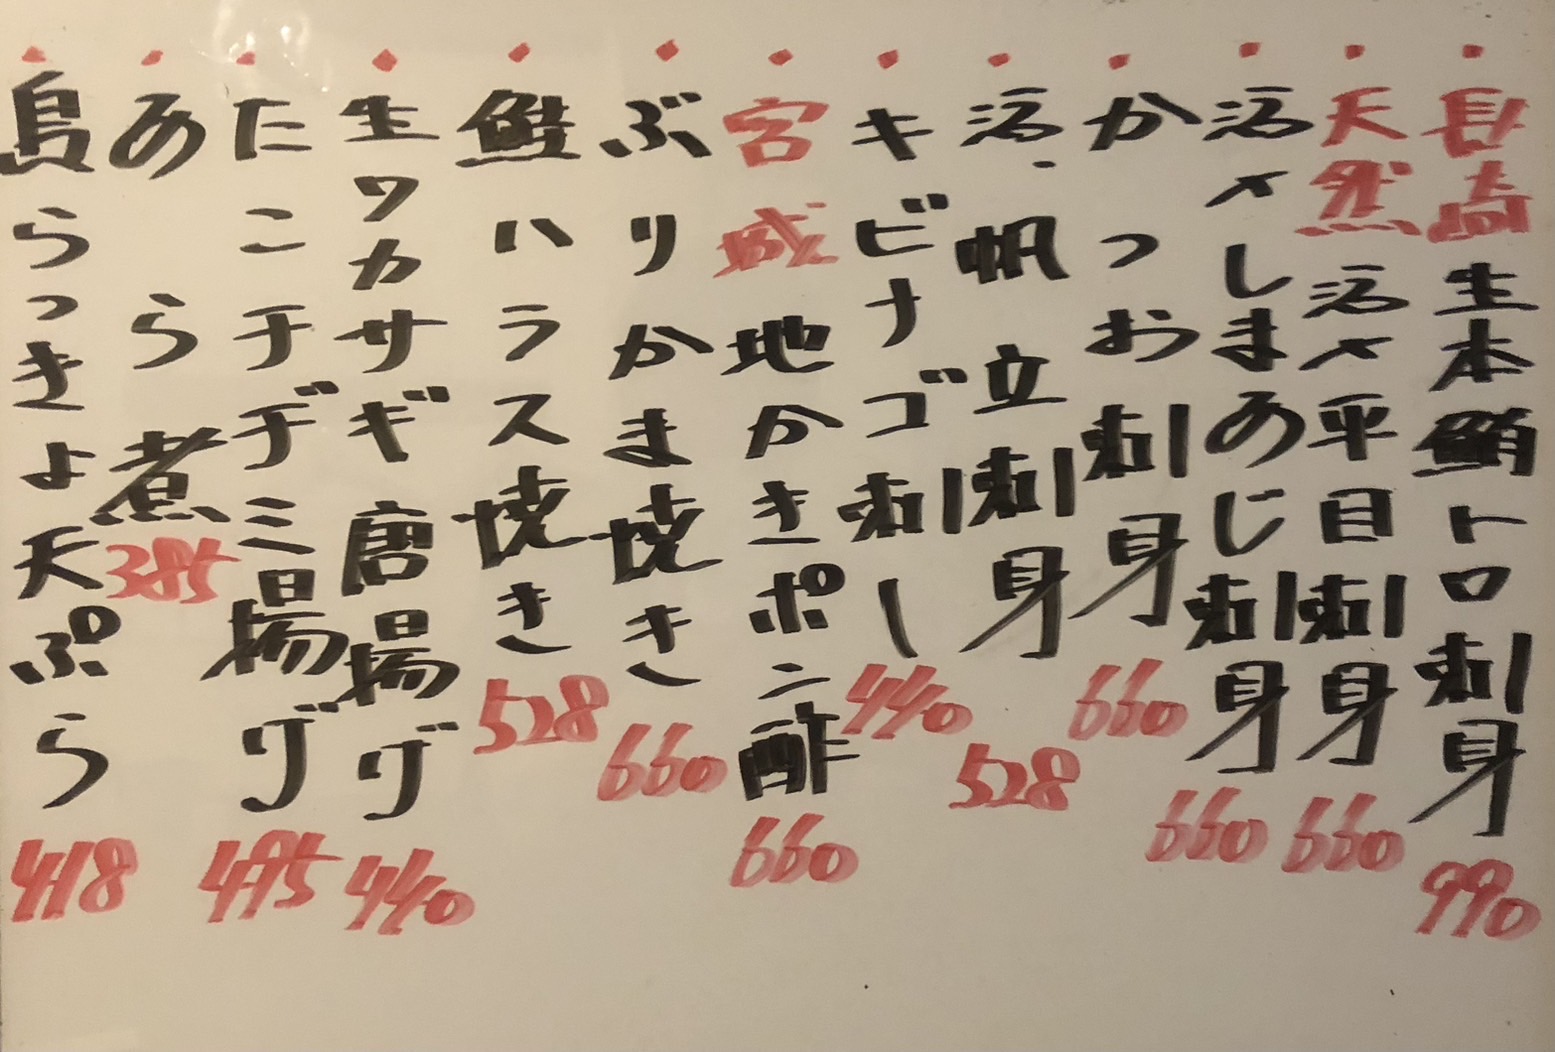 長崎生本鮪トロ刺身 990
天然活〆平目刺身 660
活〆しまあじ刺身 660
かつお刺身 660
活・帆立刺身 528
キビナゴ刺し 440
宮城地かきポン酢 660
ぶりかま焼き 660
鮭ハラス焼き 528
生ワカサギ唐揚げ 440
たこチヂミ揚げ 495
あら煮 385
島らっきょ天ぷら 418